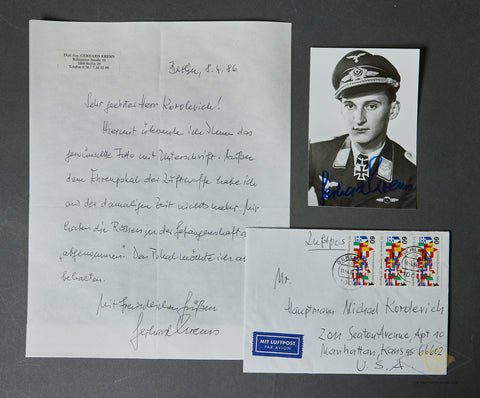 Dipl. Ing. GERHARD KREMS
1000 Berlin 20
Berlin, 8.4.86
Sehr geehrter Herr Korolevich!
Hiermit übersende ich Ihnen das
gewünschte Foto mit Unterschrift. Außer
dem Ehrenpokal der Luftwaffe habe ich
aus der damaligen Zeit nichts mehr. Mir
haben die Russen in der Gefangenschaft alles
"abgenommen". Den Pokal möchte ich aber
behalten.
Mit freundlichen Grüßen
Gerhard Krems
Gerhard Krems
Luftpost
60
60
60
BERLIN
Mr.
Hauptmann Michael Korolevich
2011 Seaton Avenue, Apt 10
Manhattan, Kansas 66502
U.S.A
MIT LUFTPOST
PAR AVION